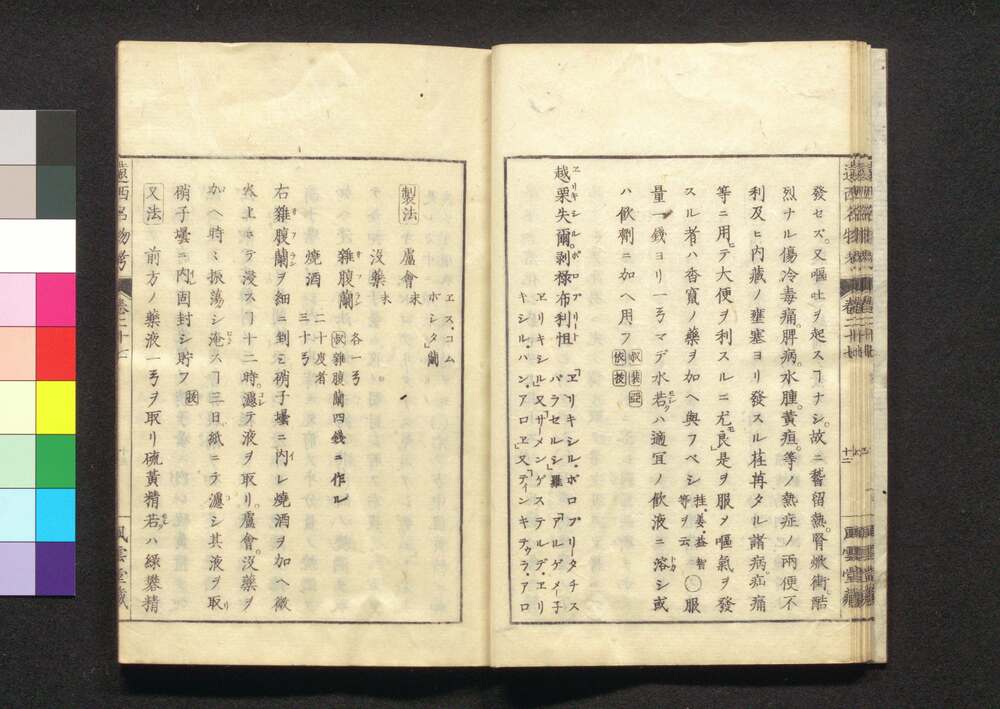 發セズ。又嘔吐ヲ起スヿナシ。故ニ稽留熱。腎焮衝。酷
烈ナル傷冷毒痛。脾病。水腫。黄疸。等ノ熱症ノ兩便不
利及ヒ内藏ノ壅塞ヨリ發スル荏苒タル諸病。疝痛
等ニ用テ大便ヲ利スルニ尤良。是ヲ服メ嘔氣ヲ發
スル者ハ香竄ノ藥ヲ加ヘ與フベシ 桂、姜、益智等ヲ云 ○服
量一錢ヨリ一ヲマデ水若クハ適冝ノ飲液ニ溶シ或
ハ飲劑ニ加ヘ用フ
越栗失爾。剥祿布利怛 「エリキシル・ボロプリータチス
バラセルシ」羅「アルゲメー子
エリキシル」又「サーメンゲステルデ・エリ
キシル・ハン・アロエ」又「ティンキテュラ・アロ
エス・コム
ホシタ」蘭
製法 蘆會末
沒藥末
雜腹蘭 各一ヲ 雜腹蘭四錢ニ作ル
燒酒 二十度者 三十ヲ
右雜腹蘭ヲ細ニ剉ミ硝子壜ニ内レ燒酒ヲ加ヘ微
火上ニテ浸スヿ十二時。濾テ液ヲ取リ。蘆會。沒藥ヲ
加ヘ時々振蕩シ淹スヿ三日。紙ニテ濾シ其液ヲ取リ
硝子壜ニ内固封シ貯フ
又法 前方ノ藥液一ヲヲ取リ硫黄精若クハ緑礬精
遠西名物考 卷二十七 風雲堂藏